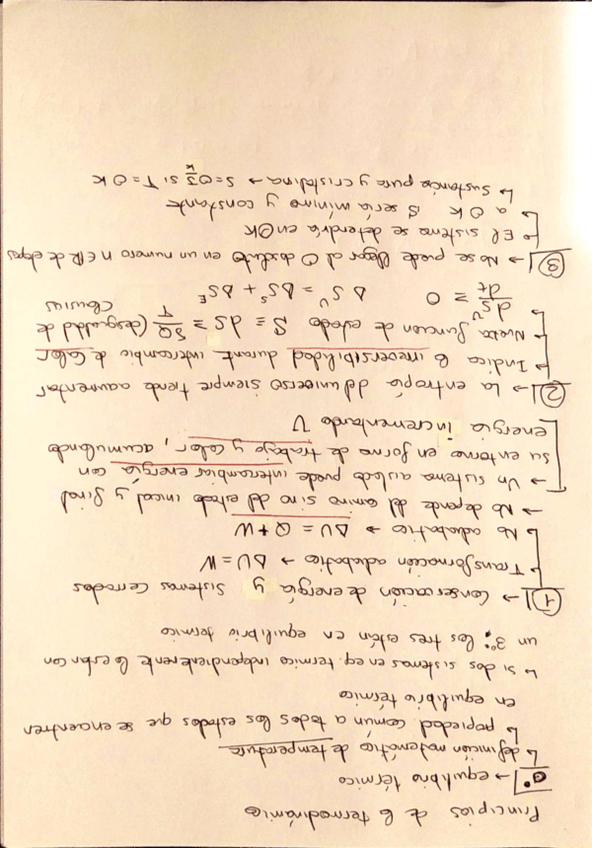 Principios de la termodinámica
0º → equilibrio térmico
↳ definición matemática de temperatura
↳ propiedad común a todos los estados que se encuentren
en equilibrio térmico
↳ si dos sistemas en eq. termico independientemente lo estan con
un 3º: los tres están en equilibrio termico
1 → Conservación de energía y sistemas cerrados
↳ Transformación adiabatica → ΔU = W
↳ No adiabatica → ΔU = Q + W
→ No depende del camino sino del estado inicial y final
→ Un sistema aislado puede intercambiar energía con
su entorno en forma de trabajo y calor, acumulando
energia incrementando U
2 → La entropía del universo siempre tiende a aumentar
↳ Indica la irreversibilidad durante intercambio de calor
↳ Nueva funcion de estado S = dS ≥ δQ/T (desigualdad de Clausius)
↳ dSᵁ/dt ≥ 0 ΔSᵁ = ΔSˢ + ΔSᴱ
3 → No se puede llegar al 0 absoluto en un numero n ∈ ℝ de etapas
↳ El sistema se detendría en 0K
↳ a 0K S sería mínimo y constante
↳ Sustancia pura y cristalina → S = 0 J/K si T = 0K